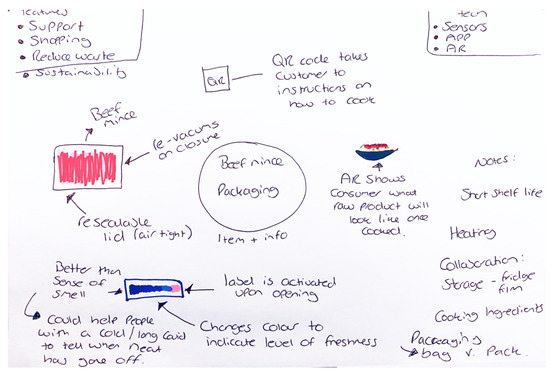 Features
• Support
• Shopping
• Reduce waste
• Sustainability
Tech
• Sensors
• APP
• AR
QR
QR code takes
Customer to
instructions on
how to cook
Beef
mince
re-vacums
on closure
resealable
lid (air tight)
Beef mince
Packaging
Item + info
AR Shows
Consumer what
raw product will
look like once
cooked.
Notes:
Short Shelf life
Heating
Collaboration:
Storage - fridge
film
Cooking Ingredients
Packaging
bag v. Pack.
Better than
Sense of
smell
label is activated
upon opening
Could help People
with a cold/long Covid
to tell when meat
has gone off.
Changes colour to
indicate level of freshness